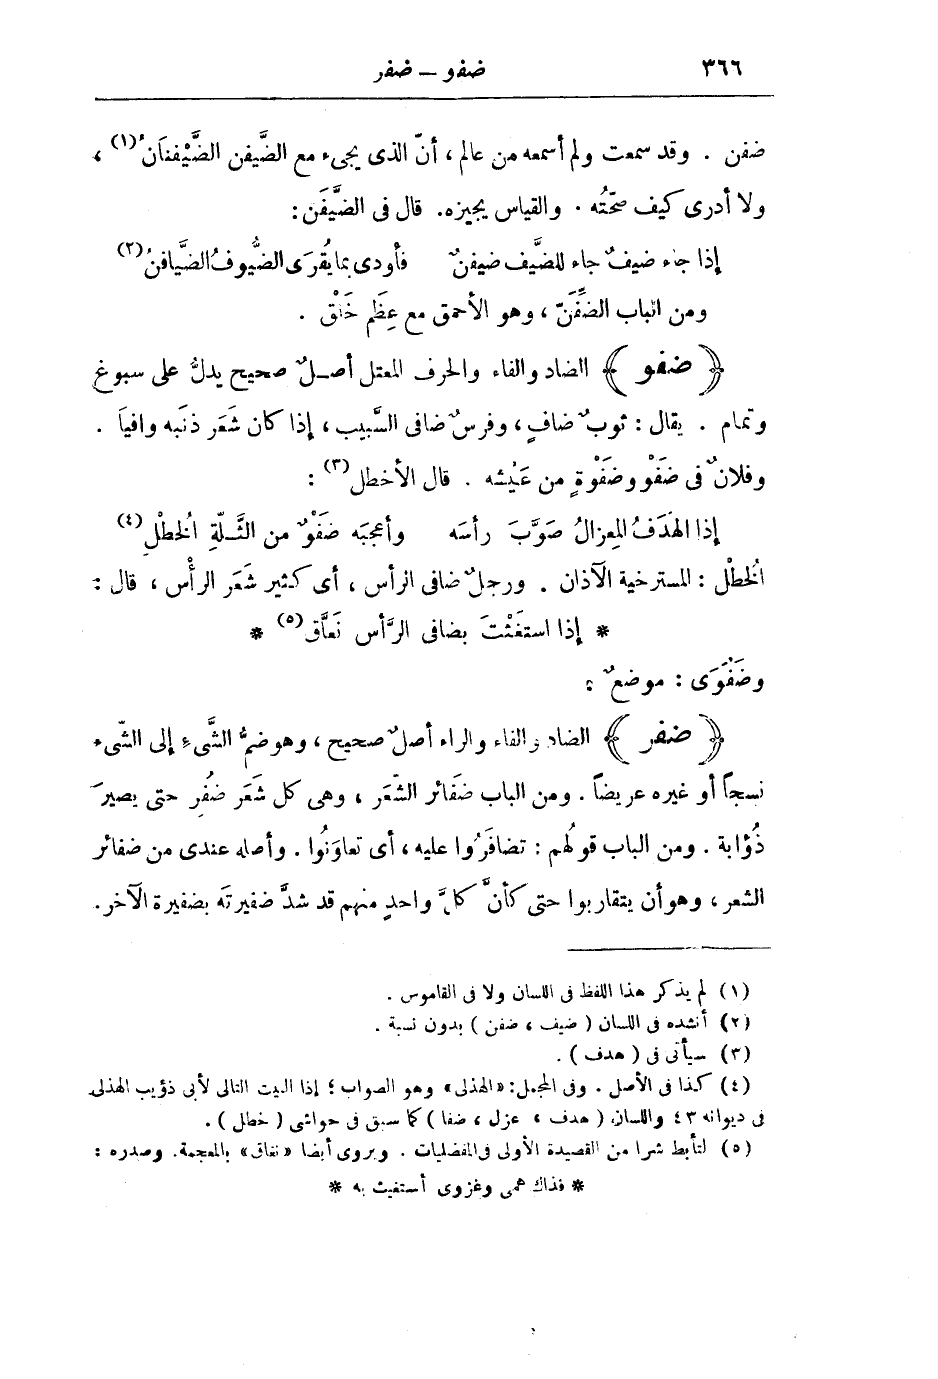 ٣٦٦ ضفو — ضفر
ضفن . وقد سمعت ولم أسمعه من عالم ، أنّ الذى يجىء مع الضَّيفن الضَّيْفنَانُ(١) ،
ولا أدرى كيف صحّتُه . والقياس يجيزه. قال فى الضَّيفَن :
إذا جاء ضيفٌ جاء للضَّيف ضيفنٌ فأودى بما يُقرَى الضُّيوفُ الضَّيافنُ(٢)
ومن الباب الضِّفَنّ ، وهو الأحمق مع عِظَم خَلْق .
﴿ ضفو ﴾ الضاد والفاء والحرف المعتل أصـلٌ صحيح يدلُّ على سبوغ
وتمام . يقال : ثوبٌ ضافٍ ، وفرسٌ ضافى السَّبيب ، إذا كان شَعَر ذنَبه وافياً .
وفلانٌ فى ضَفْوٍ وضَفْوةٍ من عَيْشه . قال الأخطل(٣) :
إذا الهَدَفُ المِعزالُ صَوَّبَ رأسَه وأعجبَه ضَفْوٌ من الثَّـلّةِ الُخطْلِ(٤)
الُخطْل : المسترخية الآذان . ورجلٌ ضافى الرأس ، أى كثير شَعَر الرأْس ، قال :
* إذا استغَثْتَ بضافى الرَّأس نَعَّاق(٥) *
وضَفَوَى : موضعٌ :
﴿ ضفر ﴾ الضاد والفاء والراء أصلٌ صحيح ، وهو ضمُّ الشَّىءِ إلى الشّىء
نسجاً أو غيره عريضاً . ومن الباب ضَفَائر الشَّعَر ، وهى كل شَعَر ضُفِر حتى يصيرَ
ذُؤابة . ومن الباب قولُهم : تضافَرُوا عليه ، أى تعاوَنُوا . وأصله عندى من ضفائر
الشعر ، وهو أن يتقاربوا حتى كأنَّ كلَّ واحدٍ منهم قد شدَّ ضفيرتَه بضفيرة الآخر .
(١) لم يذكر هذا اللفظ فى اللسان ولا فى القاموس .
(٢) أنشده فى اللسان ( ضيف ، ضفن ) بدون نسبة .
(٣) سيأتى فى ( هدف ) .
(٤) كذا فى الأصل . وفى المجمل : «الهذلى» وهو الصواب ؛ إذا البيت التالى لأبى ذؤيب الهذلى
فى ديوانه ٤٣ واللسان ( هدف ، عزل ، ضفا ) كما سبق فى حواشى ( خطل ) .
(٥) لتأبط شرا من القصيدة الأولى فى المفضليات . ويروى أيضا «نغاق» بالمعجمة. وصدره :
* فذاك همى وغزوى أستغيث به *